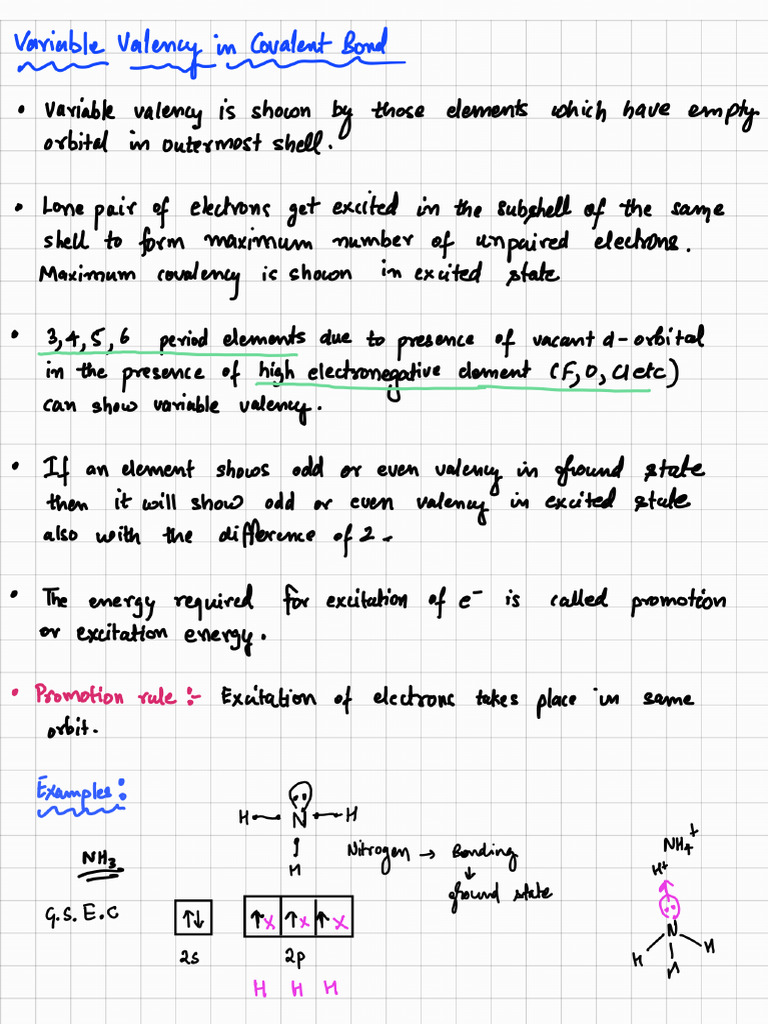 Variable Valency in Covalent Bond
• Variable valency is shown by those elements which have empty
orbital in outermost shell.
• Lone pair of electrons get excited in the subshell of the same
shell to form maximum number of unpaired electrons.
Maximum covalency is shown in excited state
• 3,4,5,6 period elements due to presence of vacant d-orbital
in the presence of high electronegative element (F, O, Cl etc)
can show variable valency.
• If an element shows odd or even valency in ground state
then it will show odd or even valency in excited state
also with the difference of 2.
• The energy required for excitation of e⁻ is called promotion
or excitation energy.
• Promotion rule :- Excitation of electrons takes place in same
orbit.
Examples:
H N H
H
NH₃
Nitrogen → Bonding
↓
ground state
G.S. E.C
↑↓ ↑x ↑x ↑x
2s 2p
H H H
NH₄⁺
H⁺
N
H H H